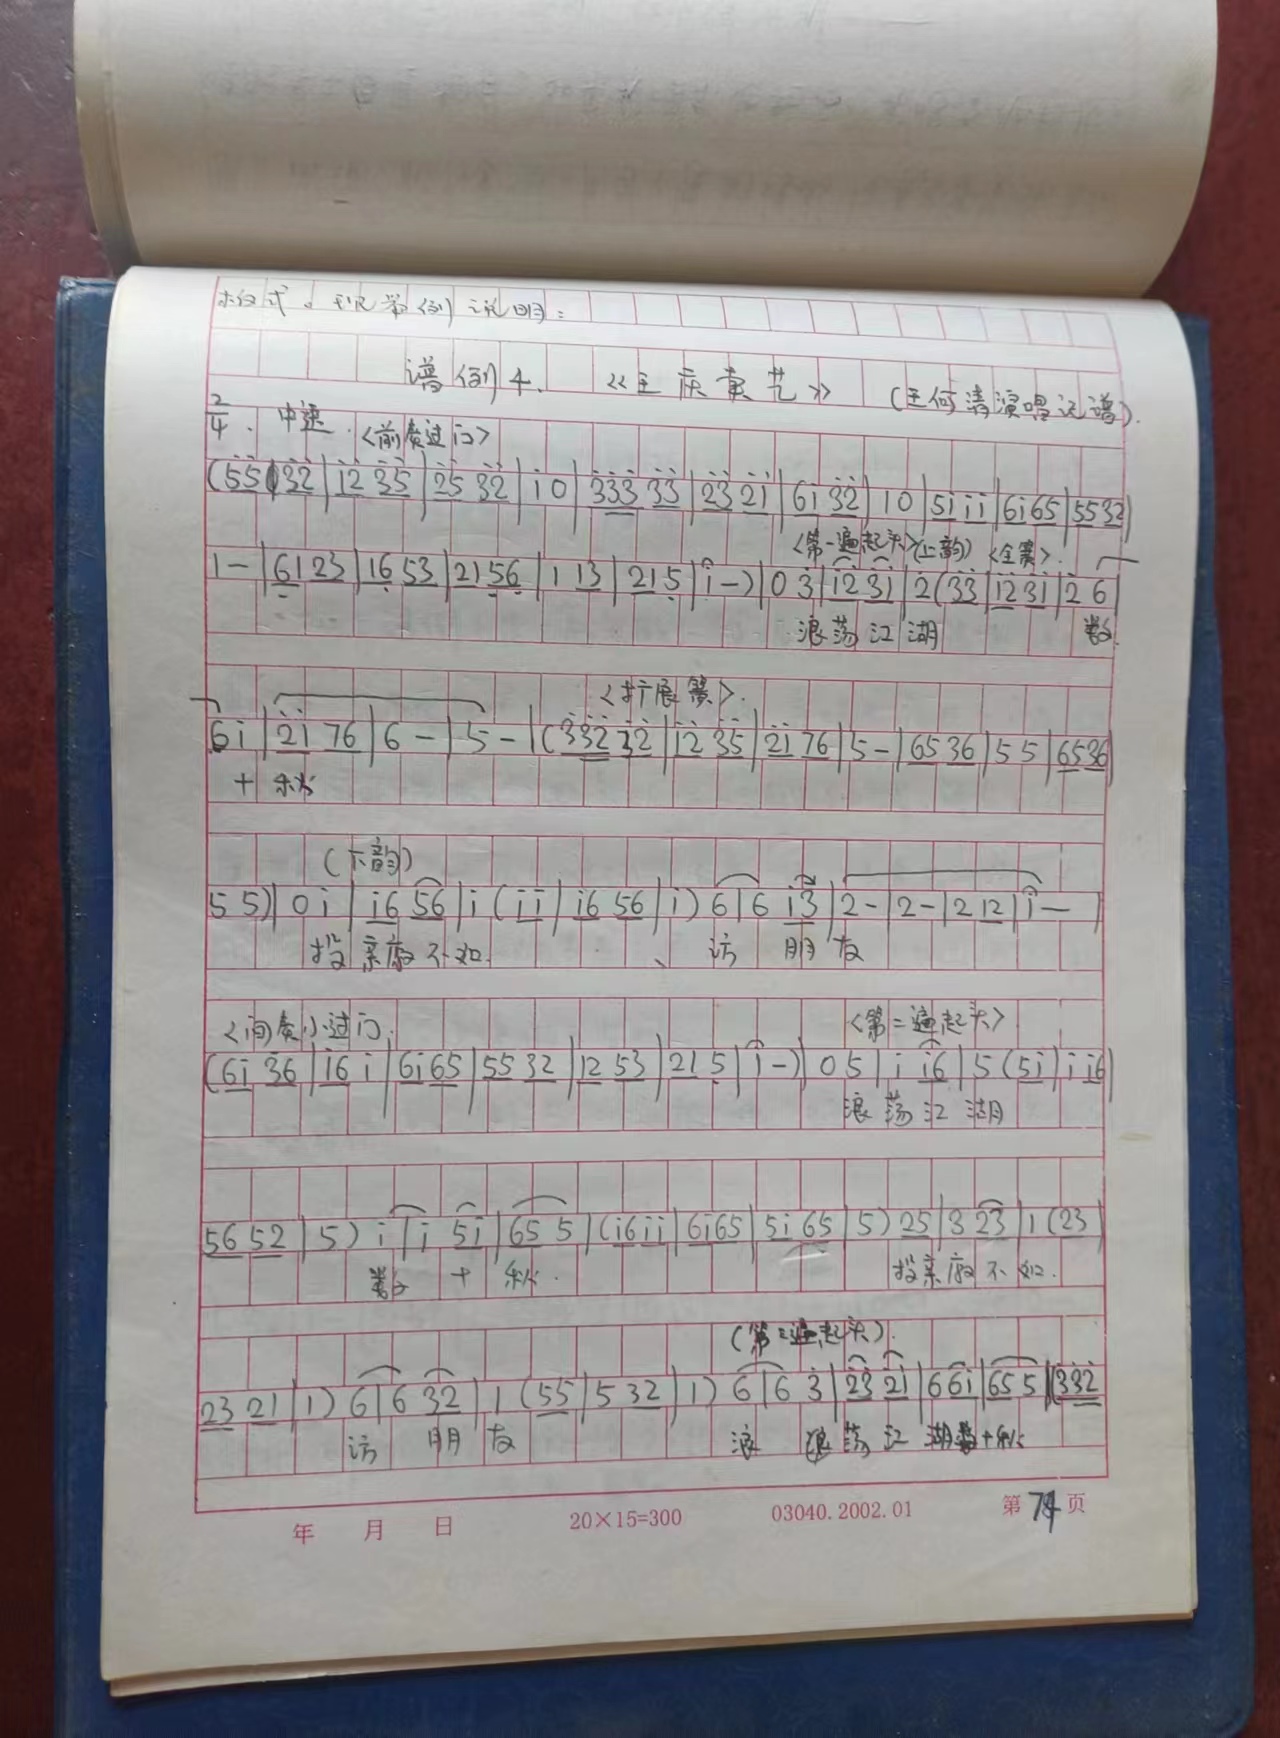 本板式。现举例说明：
谱例4. 《王庆卖艺》 (王何清演唱记谱).
2/4. 中速. <前奏过门>
(5̇5̇ 3̇2̇|i2̇ 3̇5̇|2̇5̇ 3̇2̇|i 0|3̇3̇3̇ 3̇3̇|2̇3̇ 2̇i|6i 3̇2̇|10|5i ii|6i65|5532|
<第一遍起头>(上韵) <全奏>.
1-|6123|1653|2156|1 13|21 5|i-)|0 3̇|i2̇ 3̇i|2̇(3̇3̇|i2̇ 3̇i|2̇ 6|
浪荡江湖 数
<扩展奏>.
6i|2̇i 76|6-|5-|(3̇3̇2̇ 3̇2̇|i2̇ 3̇5̇|2̇i 76|5-|65 36|5 5|6536|
十秋
(下韵)
5 5)|0 i|i6 56|i (ii|i6 56|i) 6|6 i3̇|2-|2-|2 12|i-|
投亲敢不如 访 朋友
<间奏小过门. <第二遍起头>
(6i 36|i6 i|6i65|5532|12 53|21 5|i-)|0 5|i i6|5(5i|i i6|
浪荡江湖
56 52|5) i|i 5i|65 5|(i6ii|6i65|5i 65|5) 25|3 23|1 (23|
数 十 秋. 投亲敢不如.
(第三遍起头).
23 21|1) 6|6 32|1 (55|5 32|1) 6|6 3̇|2̇3̇ 2̇i|6 6i|65 5|(3̇3̇2̇
访 朋友 浪 浪荡江湖数十秋
年 月 日 20×15=300 03040.2002.01 第74页